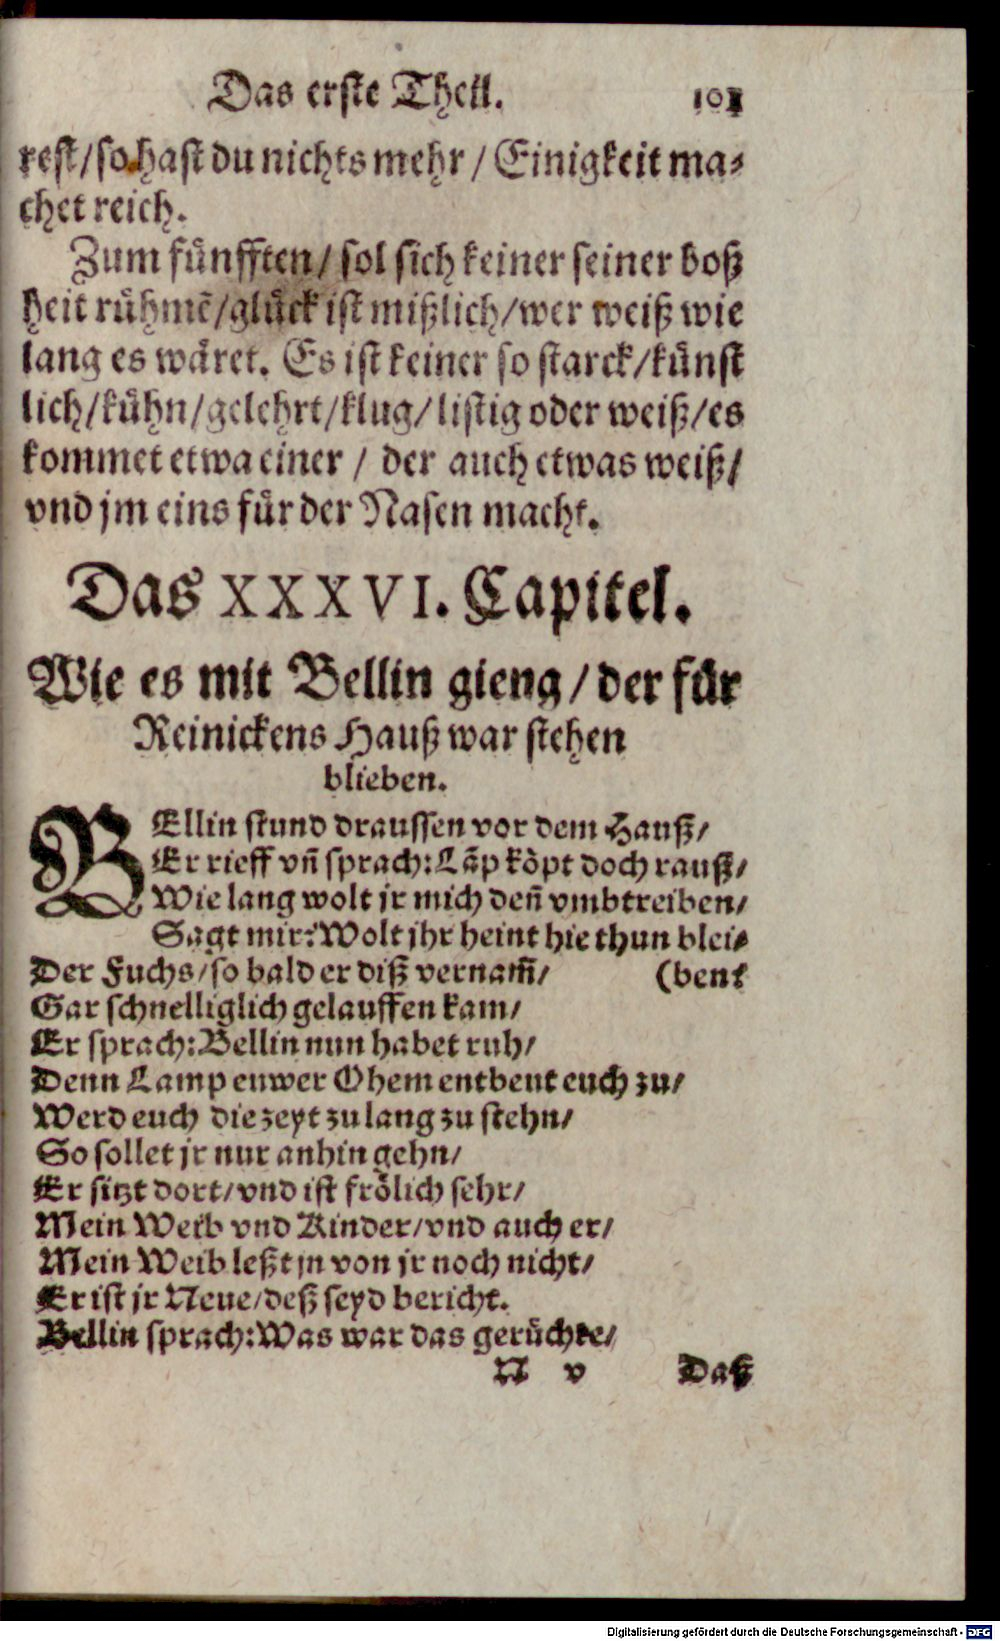 Das erste Theil. 101
rest/so hast du nichts mehr / Einigkeit ma-
chet reich.
Zum fuͤnfften/ sol sich keiner seiner boß
heit ruͤhmẽ/gluͤck ist mißlich/wer weiß wie
lang es waͤret. Es ist keiner so starck/kuͤnst
lich/kuͤhn/gelehrt/klug/listig oder weiß/es
kommet etwa einer / der auch etwas weiß/
vnd jm eins fuͤr der Nasen macht.
Das XXXVI. Capitel.
Wie es mit Bellin gieng / der fuͤr
Reinickens Hauß war stehen
blieben.
BEllin stund draussen vor dem Hauß/
Er rieff vñ sprach: Lãp koͤpt doch rauß/
Wie lang wolt jr mich deñ vmbtreiben/
Sagt mir: Wolt jhr heint hie thun blei-
Der Fuchs/so bald er diß vernam̃/ (ben?
Gar schnelliglich gelauffen kam/
Er sprach: Bellin nun habet ruh/
Denn Lamp euwer Ohem entbeut euch zu/
Werd euch die zeyt zu lang zu stehn/
So sollet jr nur anhin gehn/
Er sitzt dort/vnd ist froͤlich sehr/
Mein Weib vnd Kinder/vnd auch er/
Mein Weib leßt jn von jr noch nicht/
Er ist jr Neue/deß seyd bericht.
Bellin sprach: Was war das geruͤchte/
N v Daß
Digitalisierung gefördert durch die Deutsche Forschungsgemeinschaft - DFG